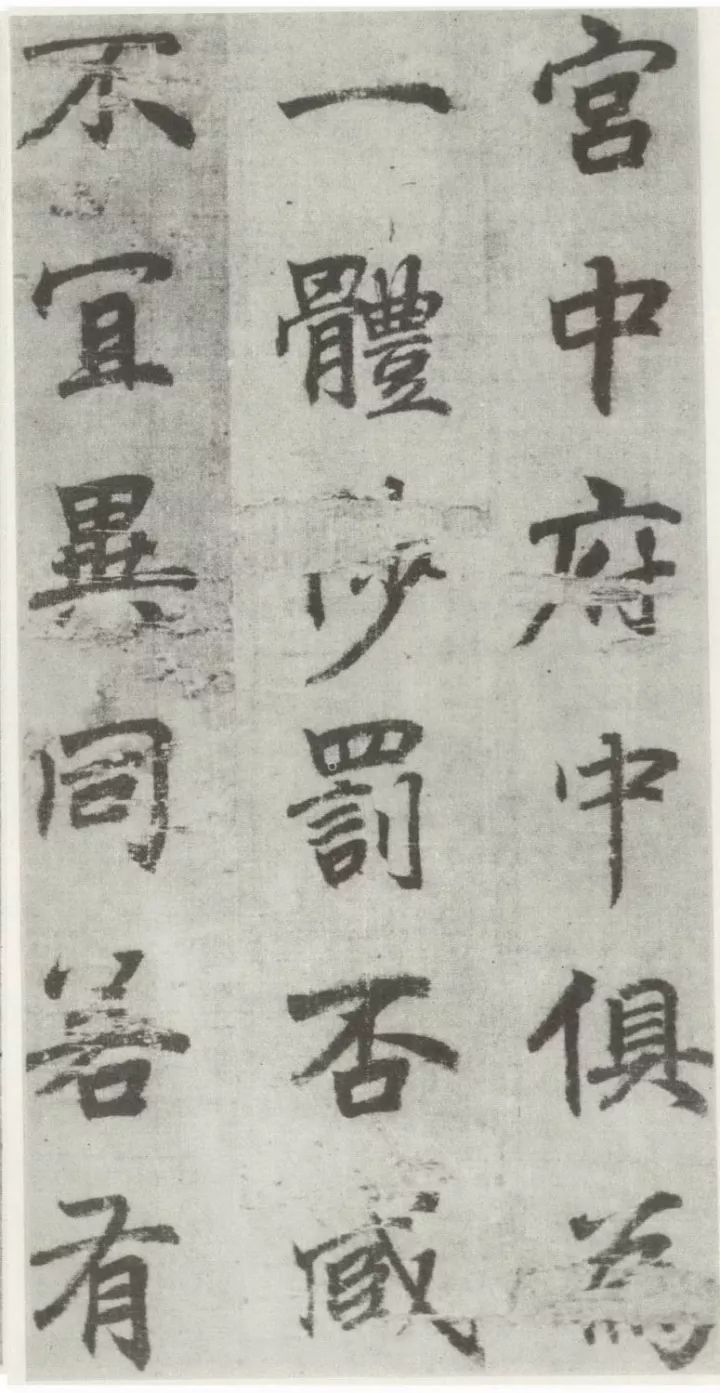 宮中府中俱為
一體陟罰否臧
不冝異同若有